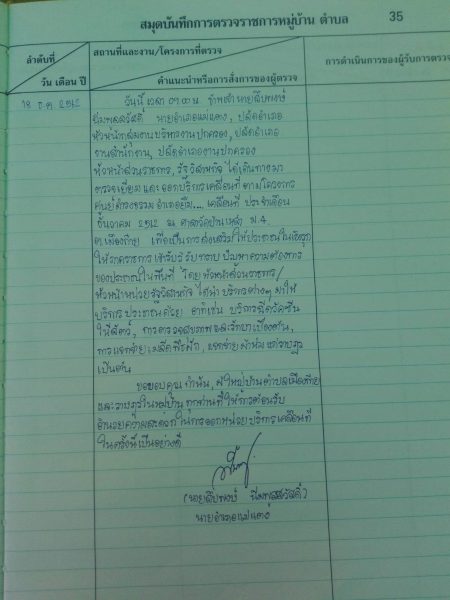 สมุดบันทึกการตรวจราชการหมู่บ้าน ตำบล
35
ลำดับที่
วัน เดือน ปี
สถานที่และงาน/โครงการที่ตรวจ
คำแนะนำหรือการสั่งการของผู้ตรวจ
การดำเนินการของผู้รับการตรวจ
18 ธ.ค. 2562
วันนี้ เวลา 09.00 น. ข้าพเจ้า นายสืบพงษ์
นิ่มพูลสวัสดิ์ นายอำเภอแม่แตง, ปลัดอำเภอ
หัวหน้ากลุ่มงานบริหารงานปกครอง, ปลัดอำเภอ
งานสำนักงาน, ปลัดอำเภองานปกครอง
หัวหน้าส่วนราชการ, รัฐวิสาหกิจ ได้เดินทางมา
ตรวจเยี่ยม และออกบริการเคลื่อนที่ ตามโครงการ
ศูนย์ดำรงธรรม อำเภอยิ้ม... เคลื่อนที่ ประจำเดือน
ธันวาคม 2562 ณ ศาลาวัดบ้าน ม.4
ต.เมืองก๋าย เพื่อเป็นการส่งเสริมให้ประชาชน
ให้ราชการ เข้ารับรู้ รับทราบ ปัญหาความต้องการ
ของประชาชนในพื้นที่ โดย หัวหน้าส่วนราชการ/
หัวหน้าหน่วยรัฐวิสาหกิจ ได้นำ บริการต่างๆ มาให้
บริการ ประชาชนด้วย อาทิเช่น บริการฉีดวัคซีน
ให้สัตว์, การตรวจสุขภาพและรักษาเบื้องต้น,
การแจกจ่ายเมล็ดพืชผัก, แจกจ่ายผ้าห่มแก่ราษฎร
เป็นต้น
ขอขอบคุณ กำนัน, ผู้ใหญ่บ้านตำบลเมืองก๋าย
และราษฎรในหมู่บ้าน ทุกท่านที่ให้การต้อนรับ
อำนวยความสะดวก ในการออกหน่วยบริการเคลื่อนที่
ในครั้งนี้ เป็นอย่างดี
(นายสืบพงษ์ นิ่มพูลสวัสดิ์)
นายอำเภอแม่แตง